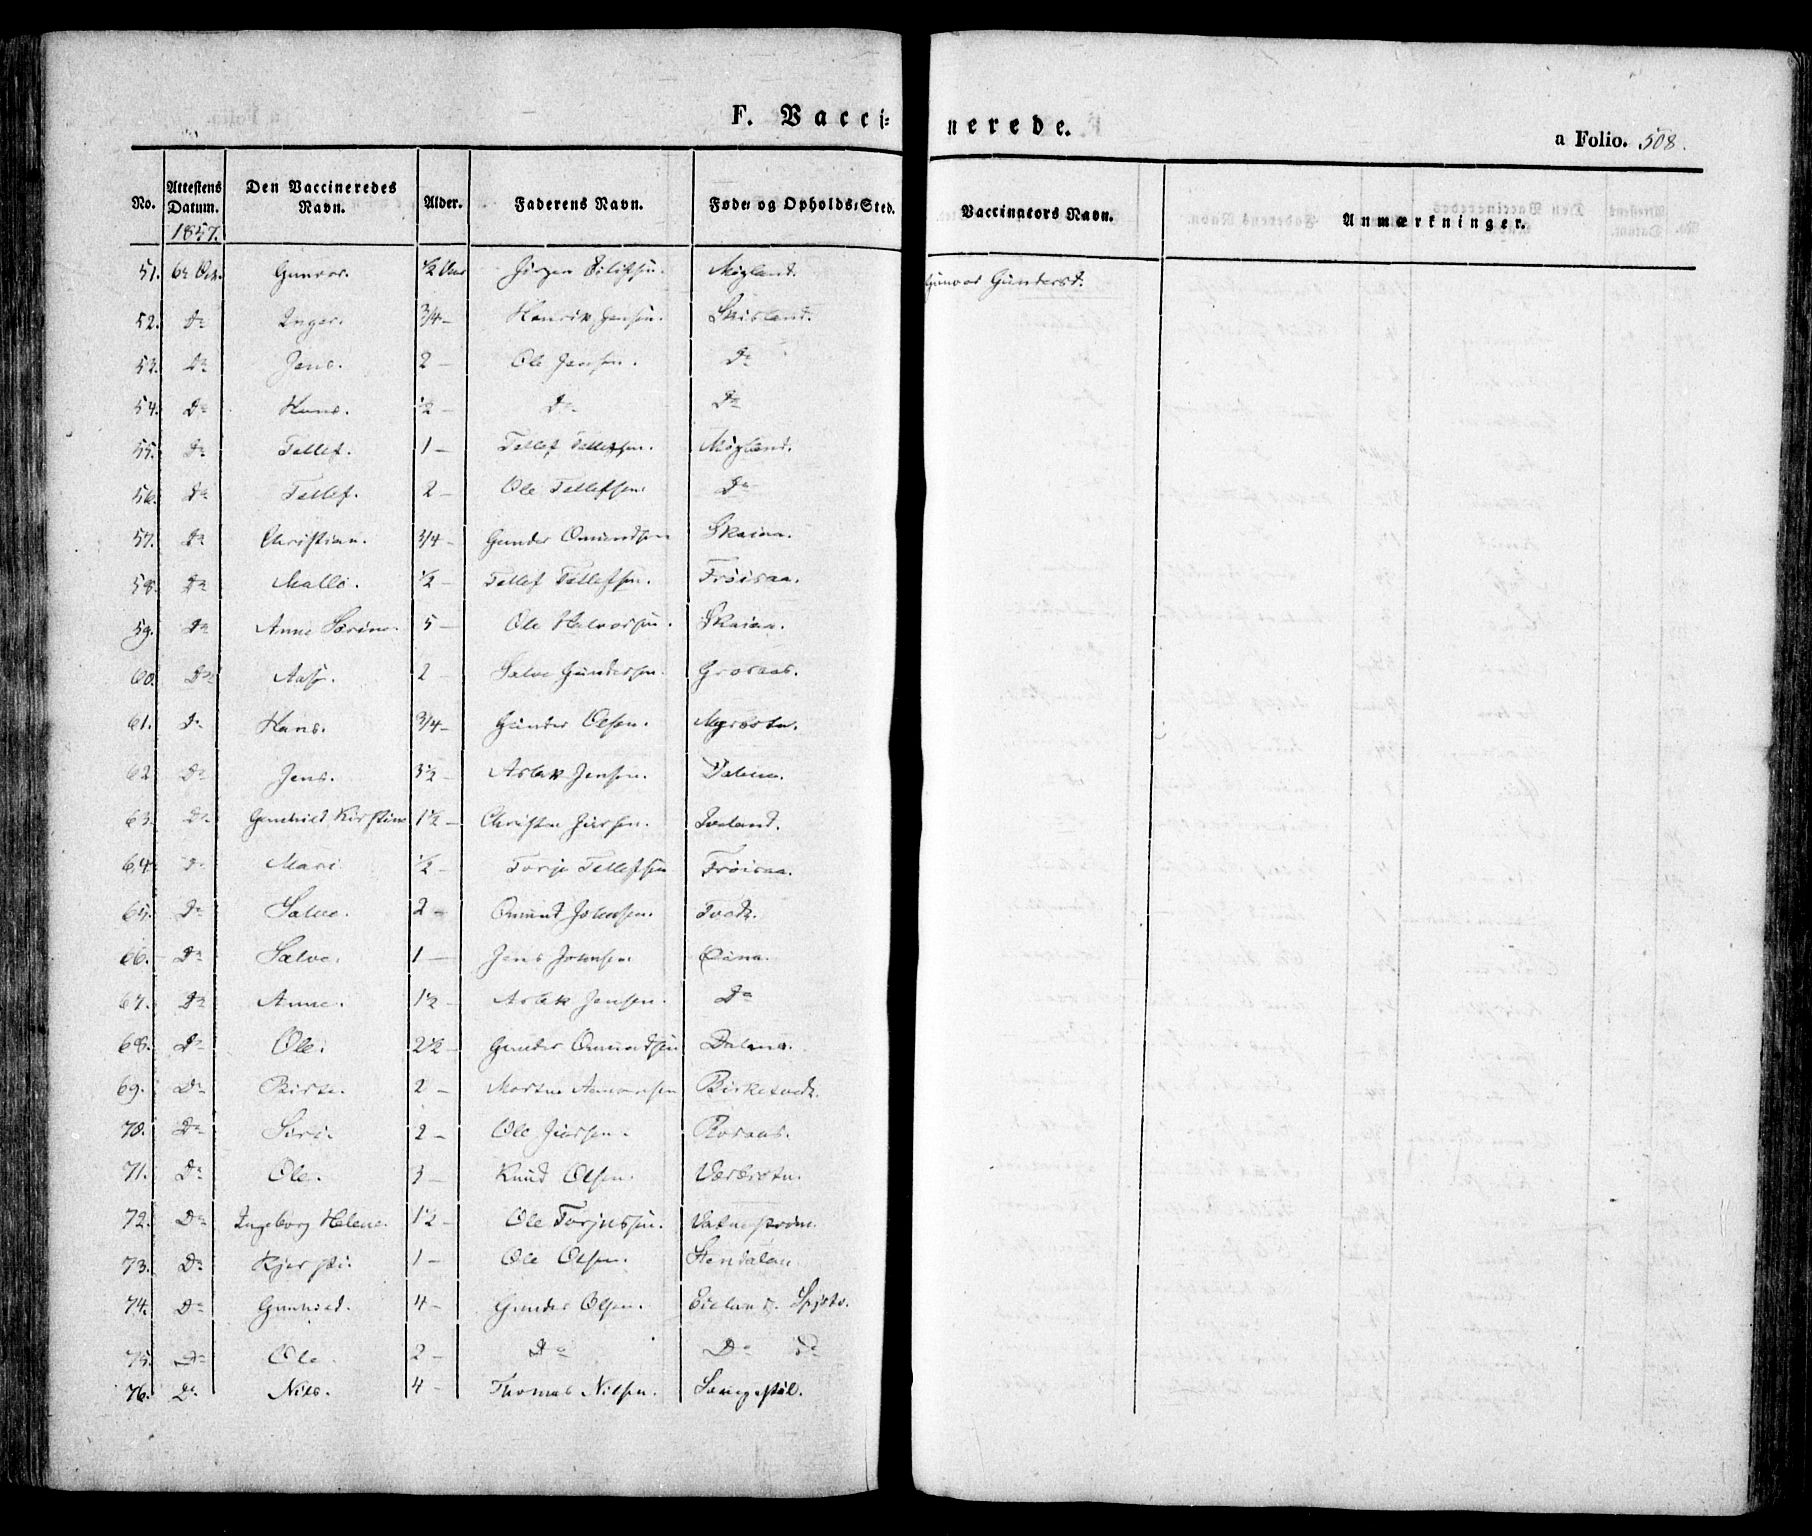 F. Vacci-
nerede.
a Folio. 508.
No. Attestens Datum. Den Vaccineredes Navn. Alder. Faderens Navn. Føde- og Opholds-Sted. Vaccinators Navn. Anmærkninger.
1857.
51. 6te Oct. Gunvor. ½ Aar Jörgen Møgland. Gunvor Gundersd.
52. Do Inger. 3/4 – Henrik Jensen. Skisland.
53. Do Jens. 2 – Ole Jensen. Do
54. Do Hans. ½ – Do Do
55. Do Tellef. 1 – Tellef Tellefsen. Møgland.
56. Do Tellef. 2 – Ole Tellefsen. Do
57. Do Christian. 3/4 – Gunder Omundsen Skaiaa.
58. Do Malle. ½ – Tellef Tellefsen. Frøisaa.
59. Do Anne Serine. 5 – Ole Halvorsen. Skaiaa.
60. Do Aase. 2 Salve Gundersen. Grosaas.
61. Do Hans. 3/4 – Gunder Olsen. Myrостn.
62 Do Jens. 3½ – Aslak Jensen. Dalene.
63. Do Gunhild Kirstine 1½ – Christen Iveland.
64. Do Mari ½ – Torje Tellefsen Frøisaa.
65. Do Salve. 2 – Omund Johnsen. Tvedt.
66. Do Salve. 1 – Jens Johnsen.
67. Do Anne. 1½ – Aslak Jensen. Do
68. Do Ole. 2½ – Gunder Omundsen Dalene.
69. Do Birte. 2 – Morten Birketvedt.
70. Do Siri. 2 – Ole Rosaas.
71. Do Ole. 3 – Knud Olsen.
72. Do Ingeborg Helene. 1½ – Ole Torjussen. Vatnestrøm.
73. Do Kjersti. 1 – Ole Olsen. Stendalen.
74. Do Gunhild. 4 – Gunder Olsen.
75. Do Ole. 2 – Do Do Do
76. Do Nils. 4 – Thomas Nilsen. Langestøl.